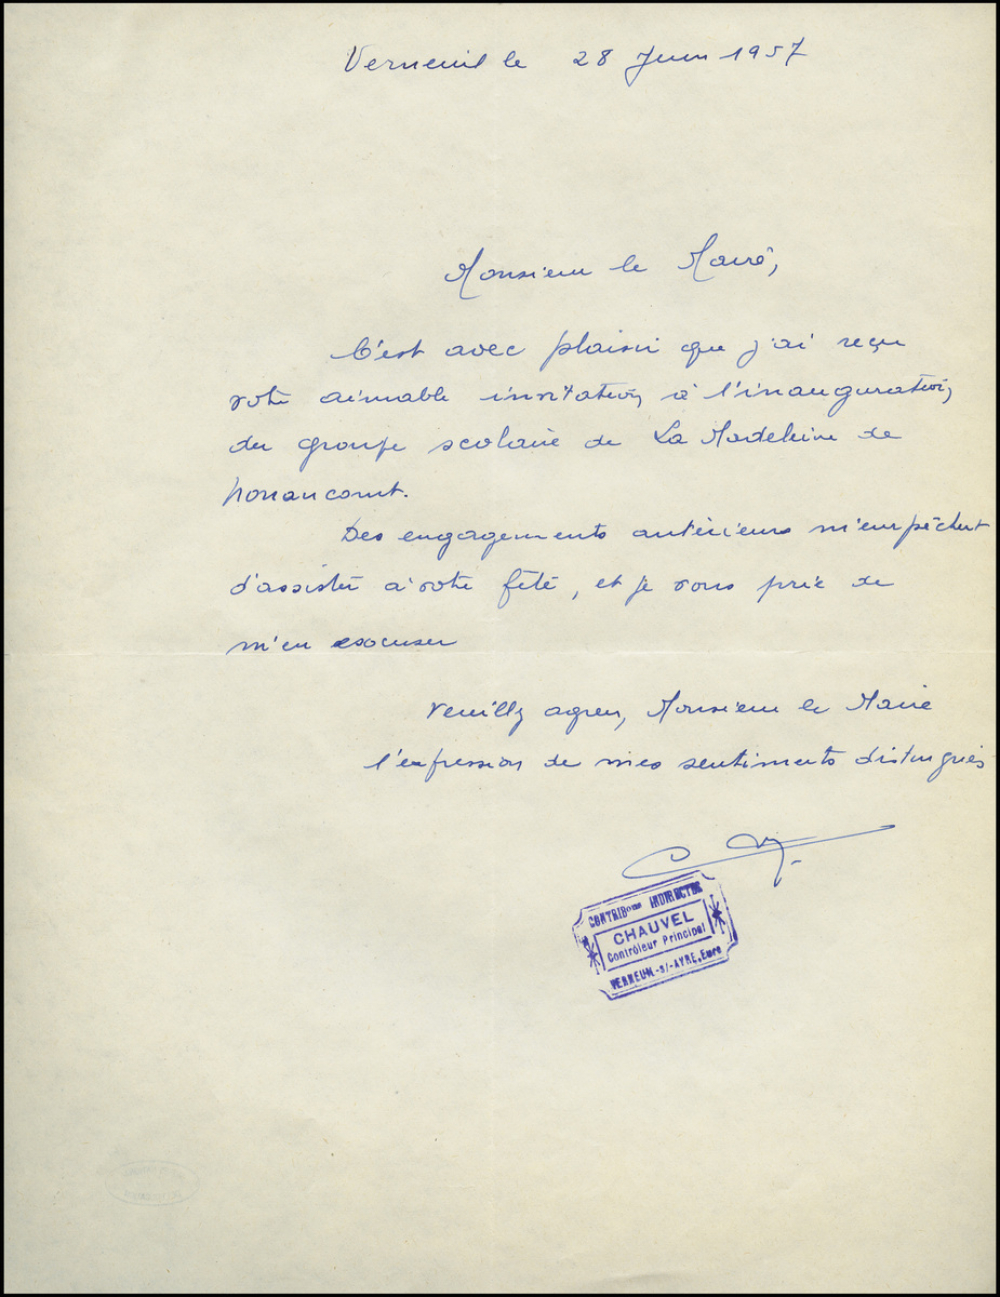 Verneuil le 28 Juin 1957
Monsieur le Maire,
C'est avec plaisir que j'ai reçu
votre aimable invitation, à l'inauguration,
du groupe scolaire de La Madeleine de
Nonancourt.
Des engagements antérieurs m'empêchent
d'assister à votre fête, et je vous prie de
m'en excuser
Veuillez agréer, Monsieur le Maire
l'expression de mes sentiments distingués
CONTRIBons INDIRECTES
CHAUVEL
Contrôleur Principal
VERNEUIL-s/-AVRE, Eure